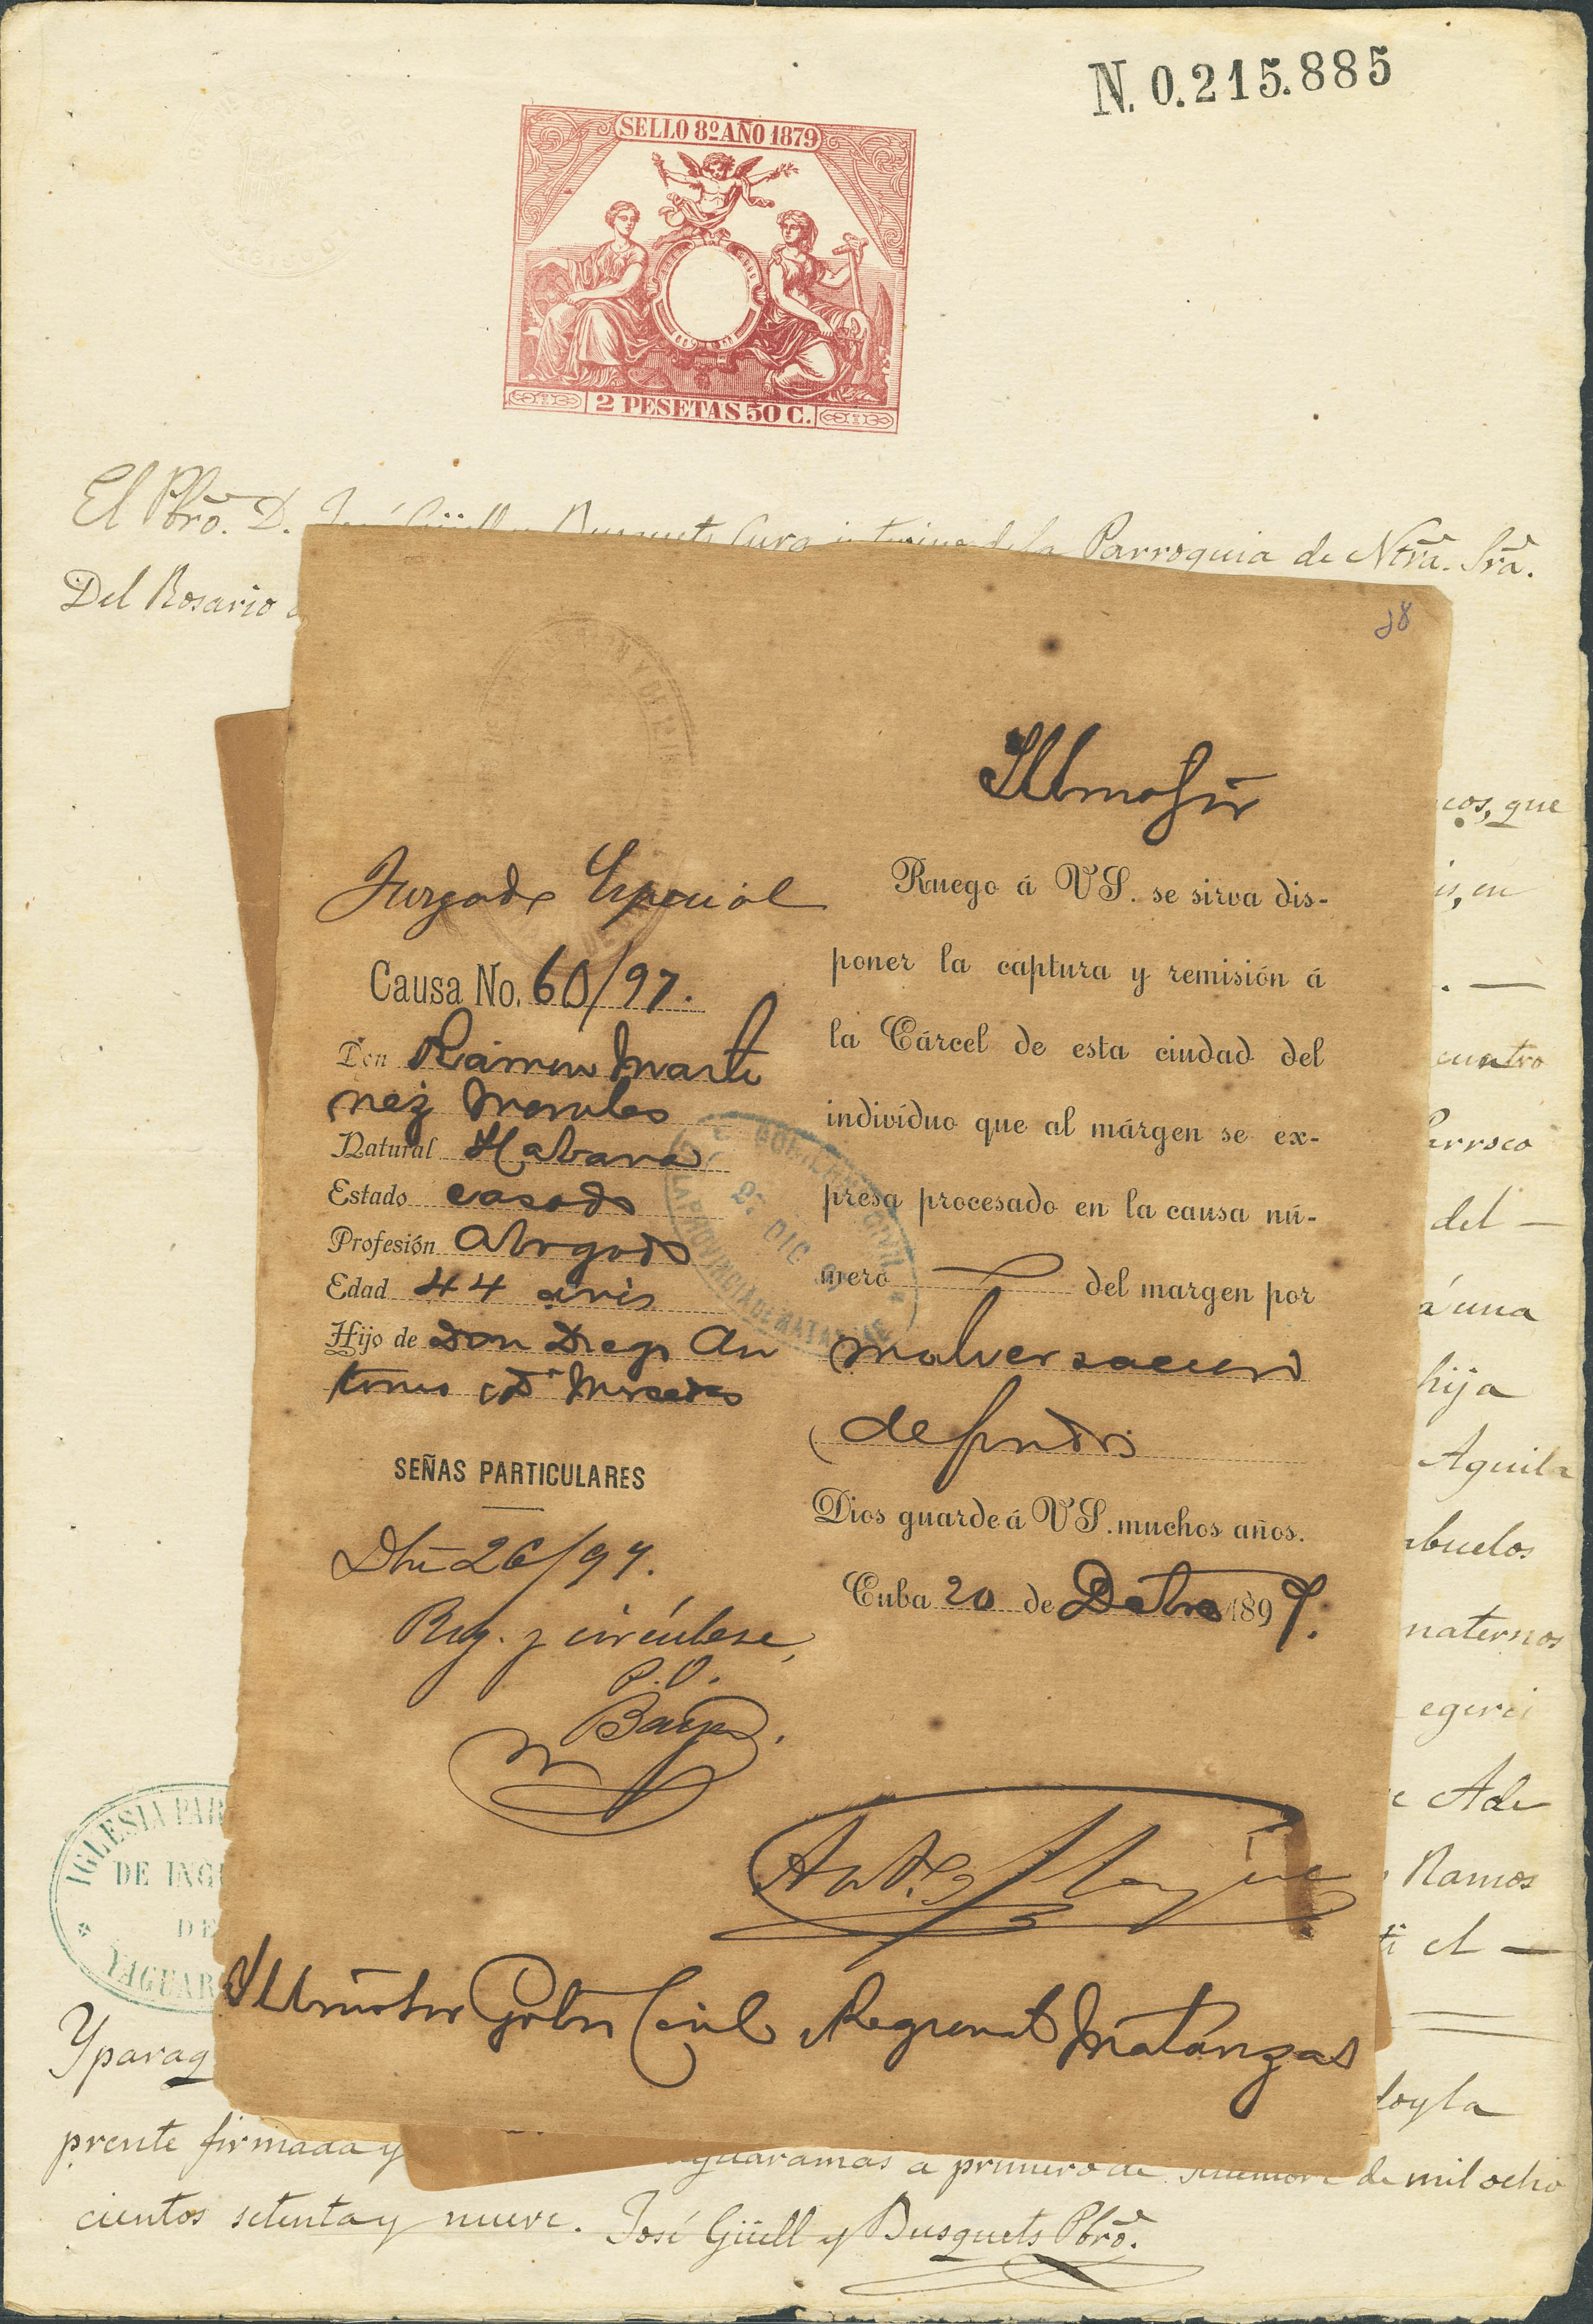 N. 0.215.885
SELLO 8º AÑO 1879
2 PESETAS 50 C.
El Pbro. D. José Güell y Busquets Cura interino de la Parroquia de Ntra. Sra.
Del Rosario
38
Juzgado Especial
Causa No. 60/97.
Don Ramon Marti
nez Morales
Natural Habana
Estado casado
Profesión Abogado
Edad 44 años
Hijo de Don Diego An
tonio y Dª Mercedes
SEÑAS PARTICULARES
26/97.
Reg. y circúlese,
P.O.
Illmo Sor
Ruego á VS. se sirva dis-
poner la captura y remisión á
la Cárcel de esta ciudad del
indivíduo que al márgen se ex-
presa procesado en la causa nú-
mero del margen por
malversacion
de fondos
Dios guarde á VS. muchos años.
Cuba 20 de Dbre 1897.
GOBIERNO CIVIL
27 DIC 97
DE LA PROVINCIA DE MATANZAS
Illmo Sor Gobor Civil Regional Matanzas
cos, que
is, en
cuatro
Parroco
del —
á una
hija
Aguila
abuelos
maternos
egerci
Ade
Ramos
el —
IGLESIA PAR
DE ING
DE
YAGUAR
Y para q
doy la
prente firmada y
aguaramas a primero de de mil ocho
cientos setenta y nueve. José Güell y Busquets Pbro.